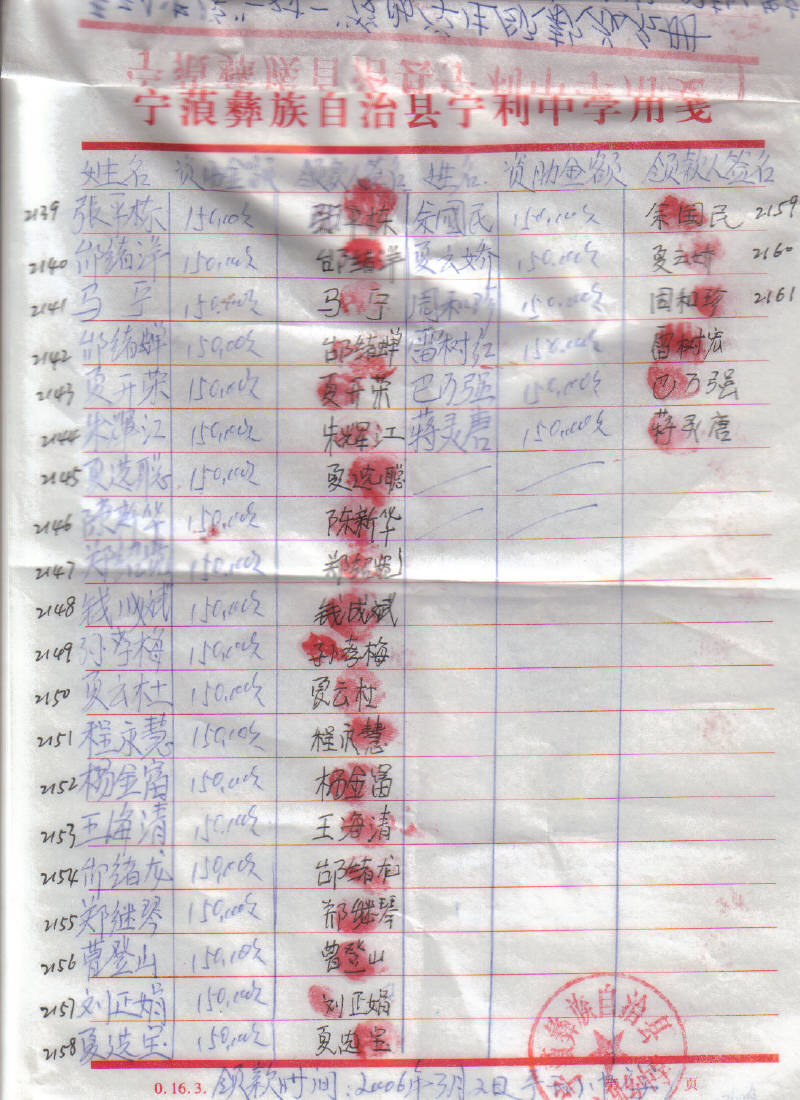 宁蒗彝族自治县宁利中学用笺
姓名 资助金额 领款人签名 姓名 资助金额 领款人签名
2139 張平栋 150.00元 張平栋 余國民 150.00元 余国民 2159
2140 邰绪洋 150.00元 邰绪洋 夏云娇 150.00元 夏云娇 2160
2141 马宁 150.00元 马宁 周和珍 150.00元 周和珍 2161
2142 邰绪蝉 150.00元 邰绪蝉 雷树红 150.00元 雷树宏
2143 夏开荣 150.00元 夏开荣 巴万强 150.00元 巴万强
2144 朱耀江 150.00元 朱辉江 蒋灵唐 150.00元 蒋灵唐
2145 夏选聪 150.00元 夏选聪
2146 陈新华 150.00元 陈新华
2147 郑绍 150.00元 郑绍
2148 钱成斌 150.00元 钱成斌
2149 孙孝梅 150.00元 孙孝梅
2150 夏云杜 150.00元 夏云杜
2151 程永慧 150.00元 程永慧
2152 杨金富 150.00元 杨金富
2153 王海清 150.00元 王海清
2154 邰绪龙 150.00元 邰绪龙
2155 郑继琴 150.00元 郑继琴
2156 曹登山 150.00元 曾登山
2157 刘正娟 150.00元 刘正娟
2158 夏选宝 150.00元 夏选宝
蒗彝族自治县
0.16.3. 领款时间:2006年3月2日 页